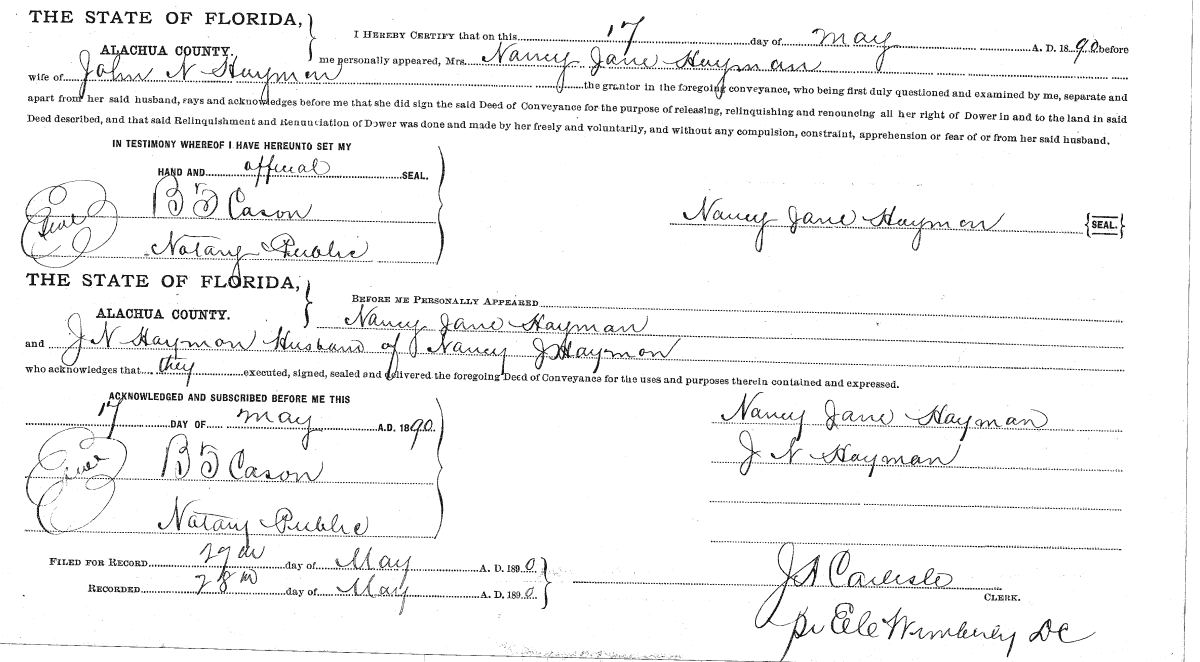 THE STATE OF FLORIDA,
ALACHUA COUNTY.
I HEREBY CERTIFY that on this 17 day of May A. D. 1890 before
me personally appeared, Mrs. Nancy Jane Hayman
wife of John N Haymon the grantor in the foregoing conveyance, who being first duly questioned and examined by me, separate and
apart from her said husband, says and acknowledges before me that she did sign the said Deed of Conveyance for the purpose of releasing, relinquishing and renouncing all her right of Dower in and to the land in said
Deed described, and that said Relinquishment and Renunciation of Dower was done and made by her freely and voluntarily, and without any compulsion, constraint, apprehension or fear of or from her said husband.
IN TESTIMONY WHEREOF I HAVE HEREUNTO SET MY
HAND AND official SEAL.
Seal
B F Cason
Notary Public
Nancy Jane Haymon {SEAL.}
THE STATE OF FLORIDA,
ALACHUA COUNTY.
BEFORE ME PERSONALLY APPEARED
Nancy Jane Hayman
and J N Haymon Husband of Nancy J Haymon
who acknowledges that they executed, signed, sealed and delivered the foregoing Deed of Conveyance for the uses and purposes therein contained and expressed.
ACKNOWLEDGED AND SUBSCRIBED BEFORE ME THIS
17 DAY OF May A.D. 1890.
Seal
B F Cason
Notary Public
Nancy Jane Hayman
J N Hayman
FILED FOR RECORD 27th day of May A. D. 1890.
RECORDED 28th day of May A. D. 1890.
J A Carlisle
CLERK.
pr Wimberly DC